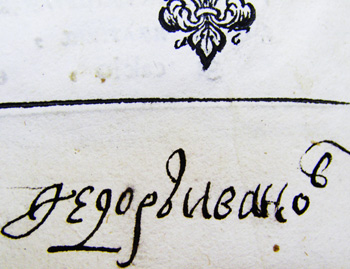 Ѳедоръ Ивановⷡ